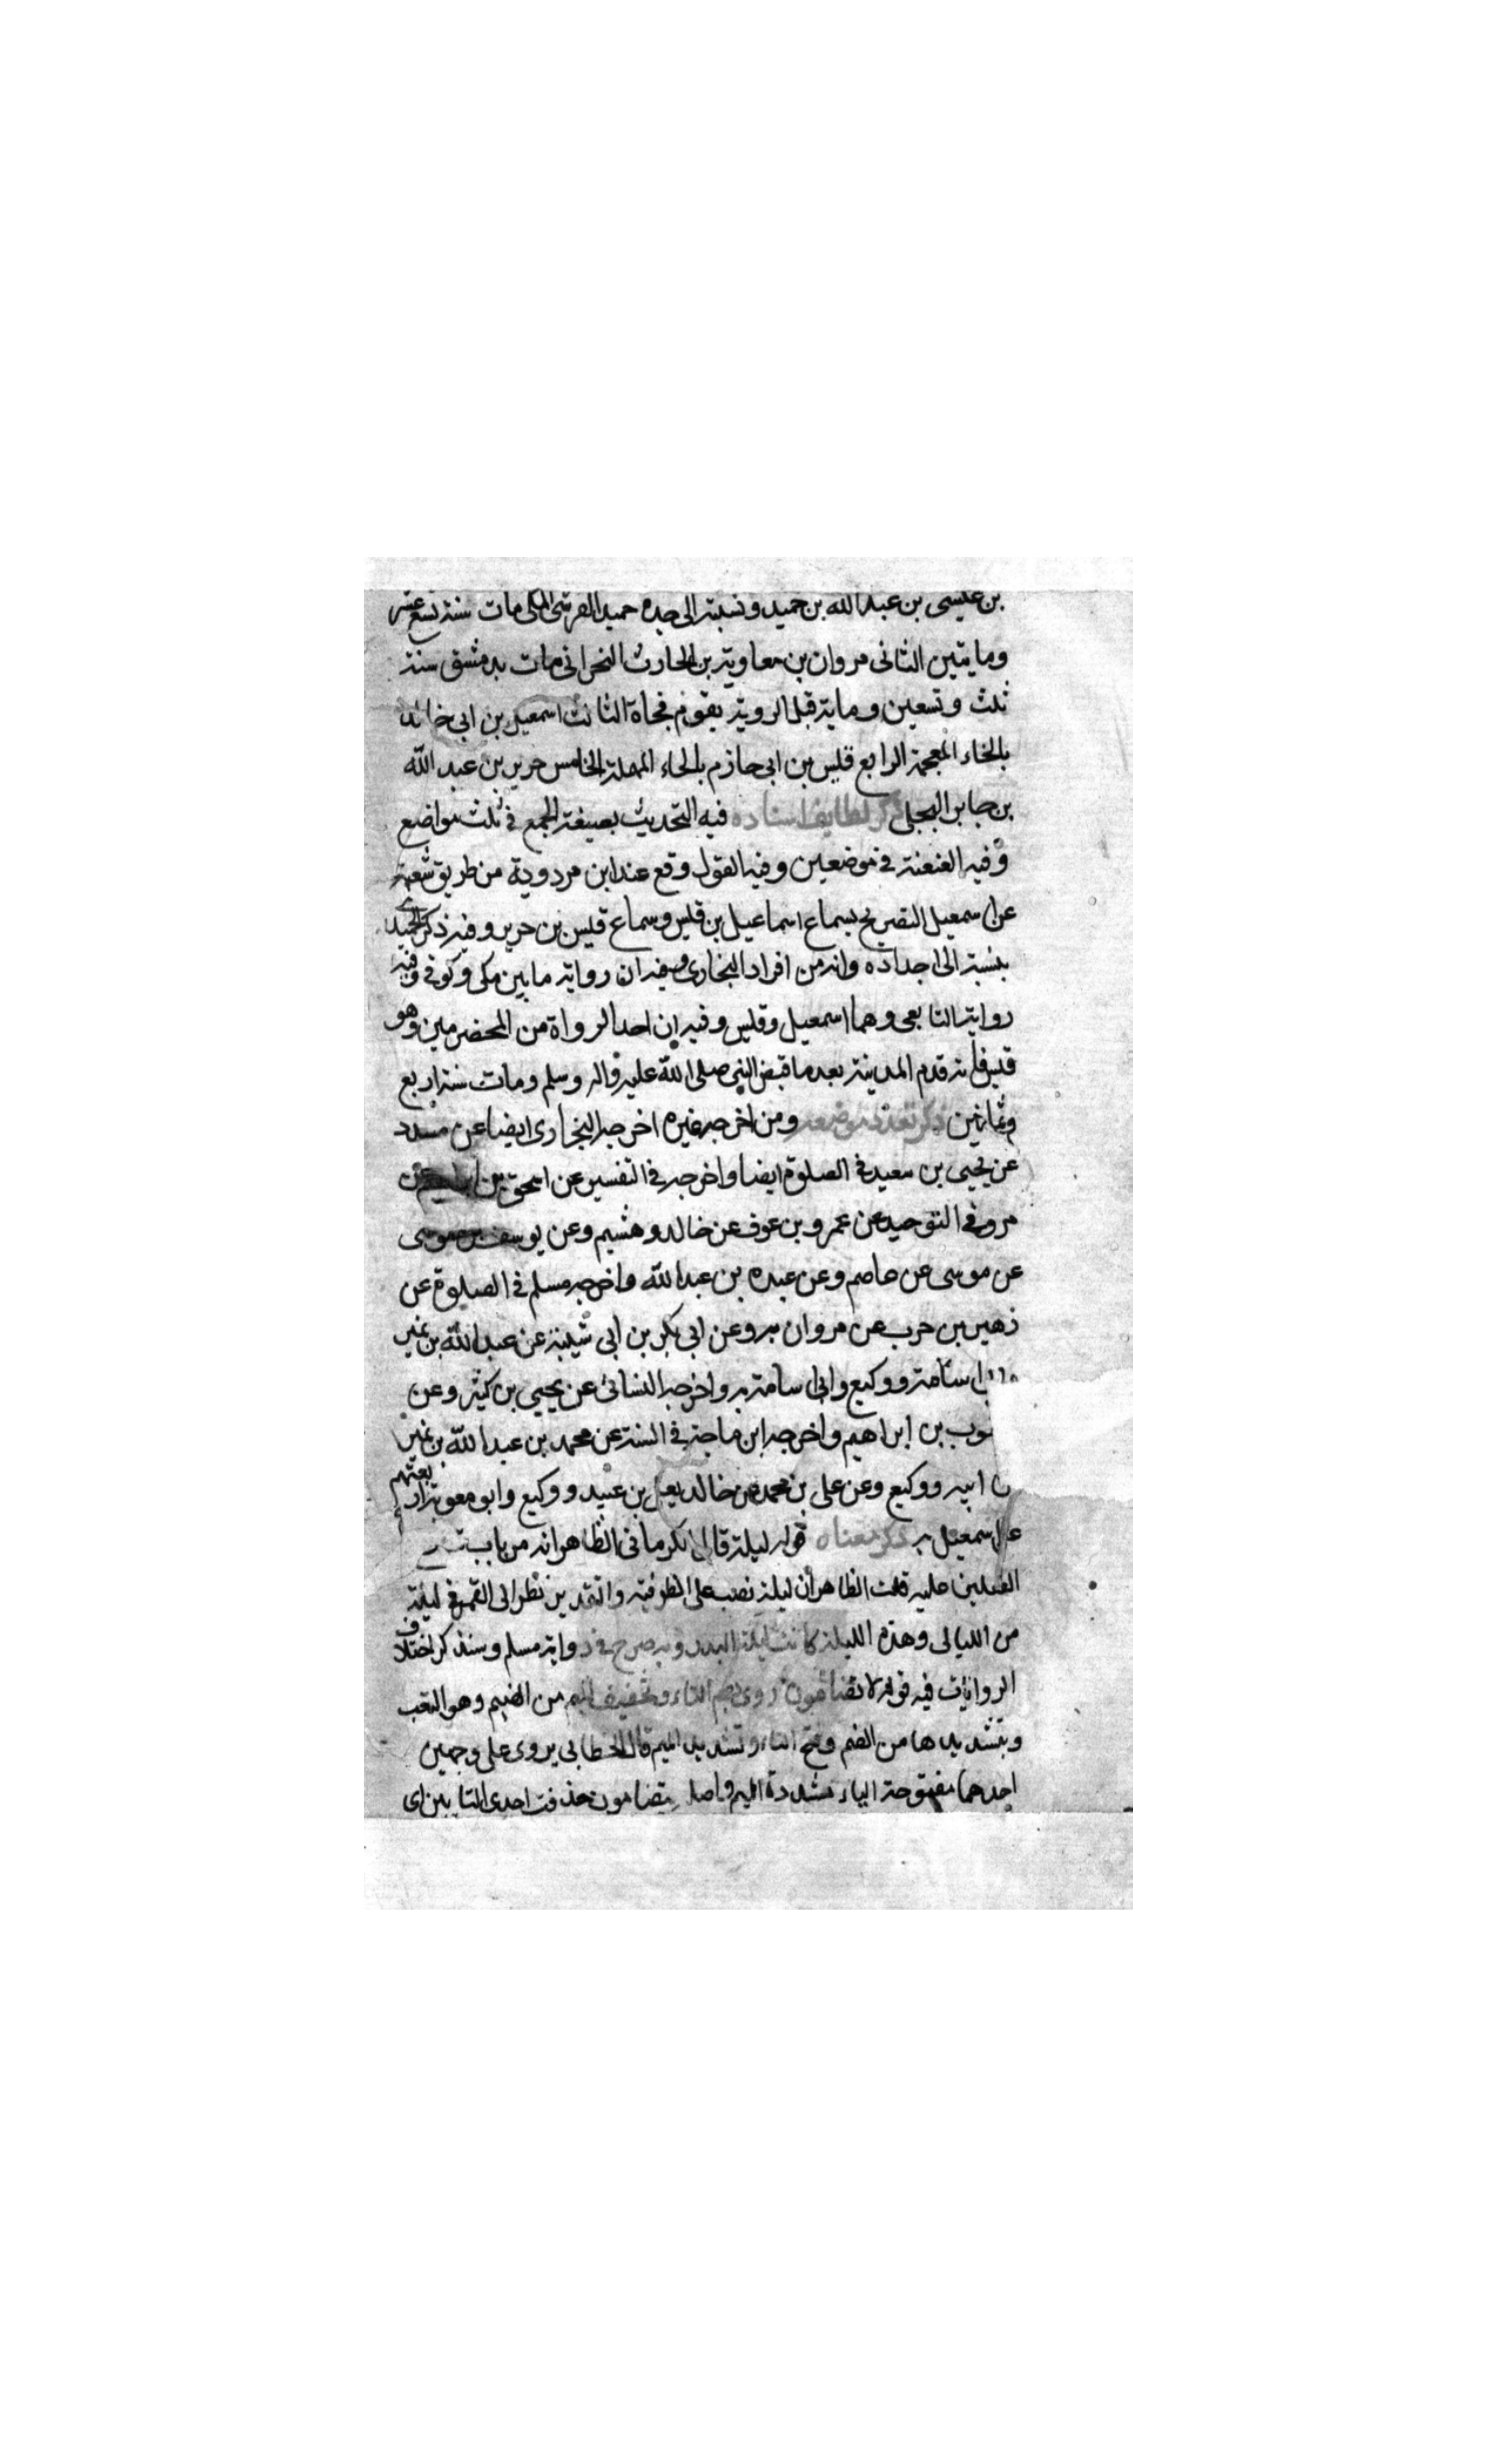 بن عيسى بن عبد الله بن حميد ونسبته الى جده حميد القرشى المكى مات سنة تسع عشر
ومايتين الثانى مروان بن معاوية بن الحارث الفزارى مات بدمشق سنة
ثلث وتسعين وماية قبل الروية بيوم فجاة الثالث اسمعيل بن ابى خالد
بالخاء المعجمة الرابع قيس بن ابى حازم بالحاء المهملة الخامس جرير بن عبد الله
بن جابر البجلى ذكر لطايف اسناده فيه التحديث بصيغة الجمع فى ثلث مواضع
وفيه العنعنة فى موضعين وفيه القول وقع عند ابن مردوية من طريق شعبة
عن اسمعيل التصريح بسماع اسماعيل بن قيس وسماع قيس بن جرير وفيه ذكر الحميدى
بنسبته الى اجداده وانه من افراد البخارى وفيه ان رواية ما بين مكى وكوفى وفيه
رواية التابعى وهما اسمعيل وقيس وفيه ان احد الرواة من المخضرمين وهو
قيس فانه قدم المدينة بعد ما قبض النبى صلى الله عليه واله وسلم ومات سنة اربع
وثمانين ذكر تعدد موضعه ومن اخرجه غيره اخرجه البخارى ايضا عن مسدد
عن يحيى بن سعيد فى الصلوة ايضا واخرجه فى التفسير عن اسحق بن ابراهيم عن
مرو فى التوحيد عن عمرو بن عوف عن خالد وهشيم وعن يوسف بن موسى
عن موسى عن عاصم وعن عبده بن عبد الله واخرجه مسلم فى الصلوة عن
زهير بن حرب عن مروان به وعن ابى بكر بن ابى شيبة عن عبد الله بن نمير
اسامة ووكيع وابى اسامة به واخرجه النسائى عن يحيى بن كثير وعن
بن ابراهيم واخرجه ابن ماجة فى السنة عن محمد بن عبد الله بن نمير
ابيه ووكيع وعن على بن محمد عن خالد يعلى بن عبيد ووكيع وابو معوية اربعتهم
عن اسمعيل به ذكر معناه قوله ليلة قال الكرمانى الظاهر انه من باب
الفعلين عليه قلت الظاهر ان ليلة نصب على الظرفية والتقدير نظر الى القمر فى ليلة
من الليالى وهذه الليلة كانت ليلة البدر وبه صرح فى رواية مسلم وسنذكر اختلاف
الروايات فيه قوله لا تضامون روى بضم التاء وتخفيف الميم من الضيم وهو التعب
وبتشديدها من الضم وفتح التاء وتشديد الميم قال الخطابى يروى على وجهين
احدهما مفتوحة الياء مشددة الميم واصله يتضامون حذفت احدى التايين اى